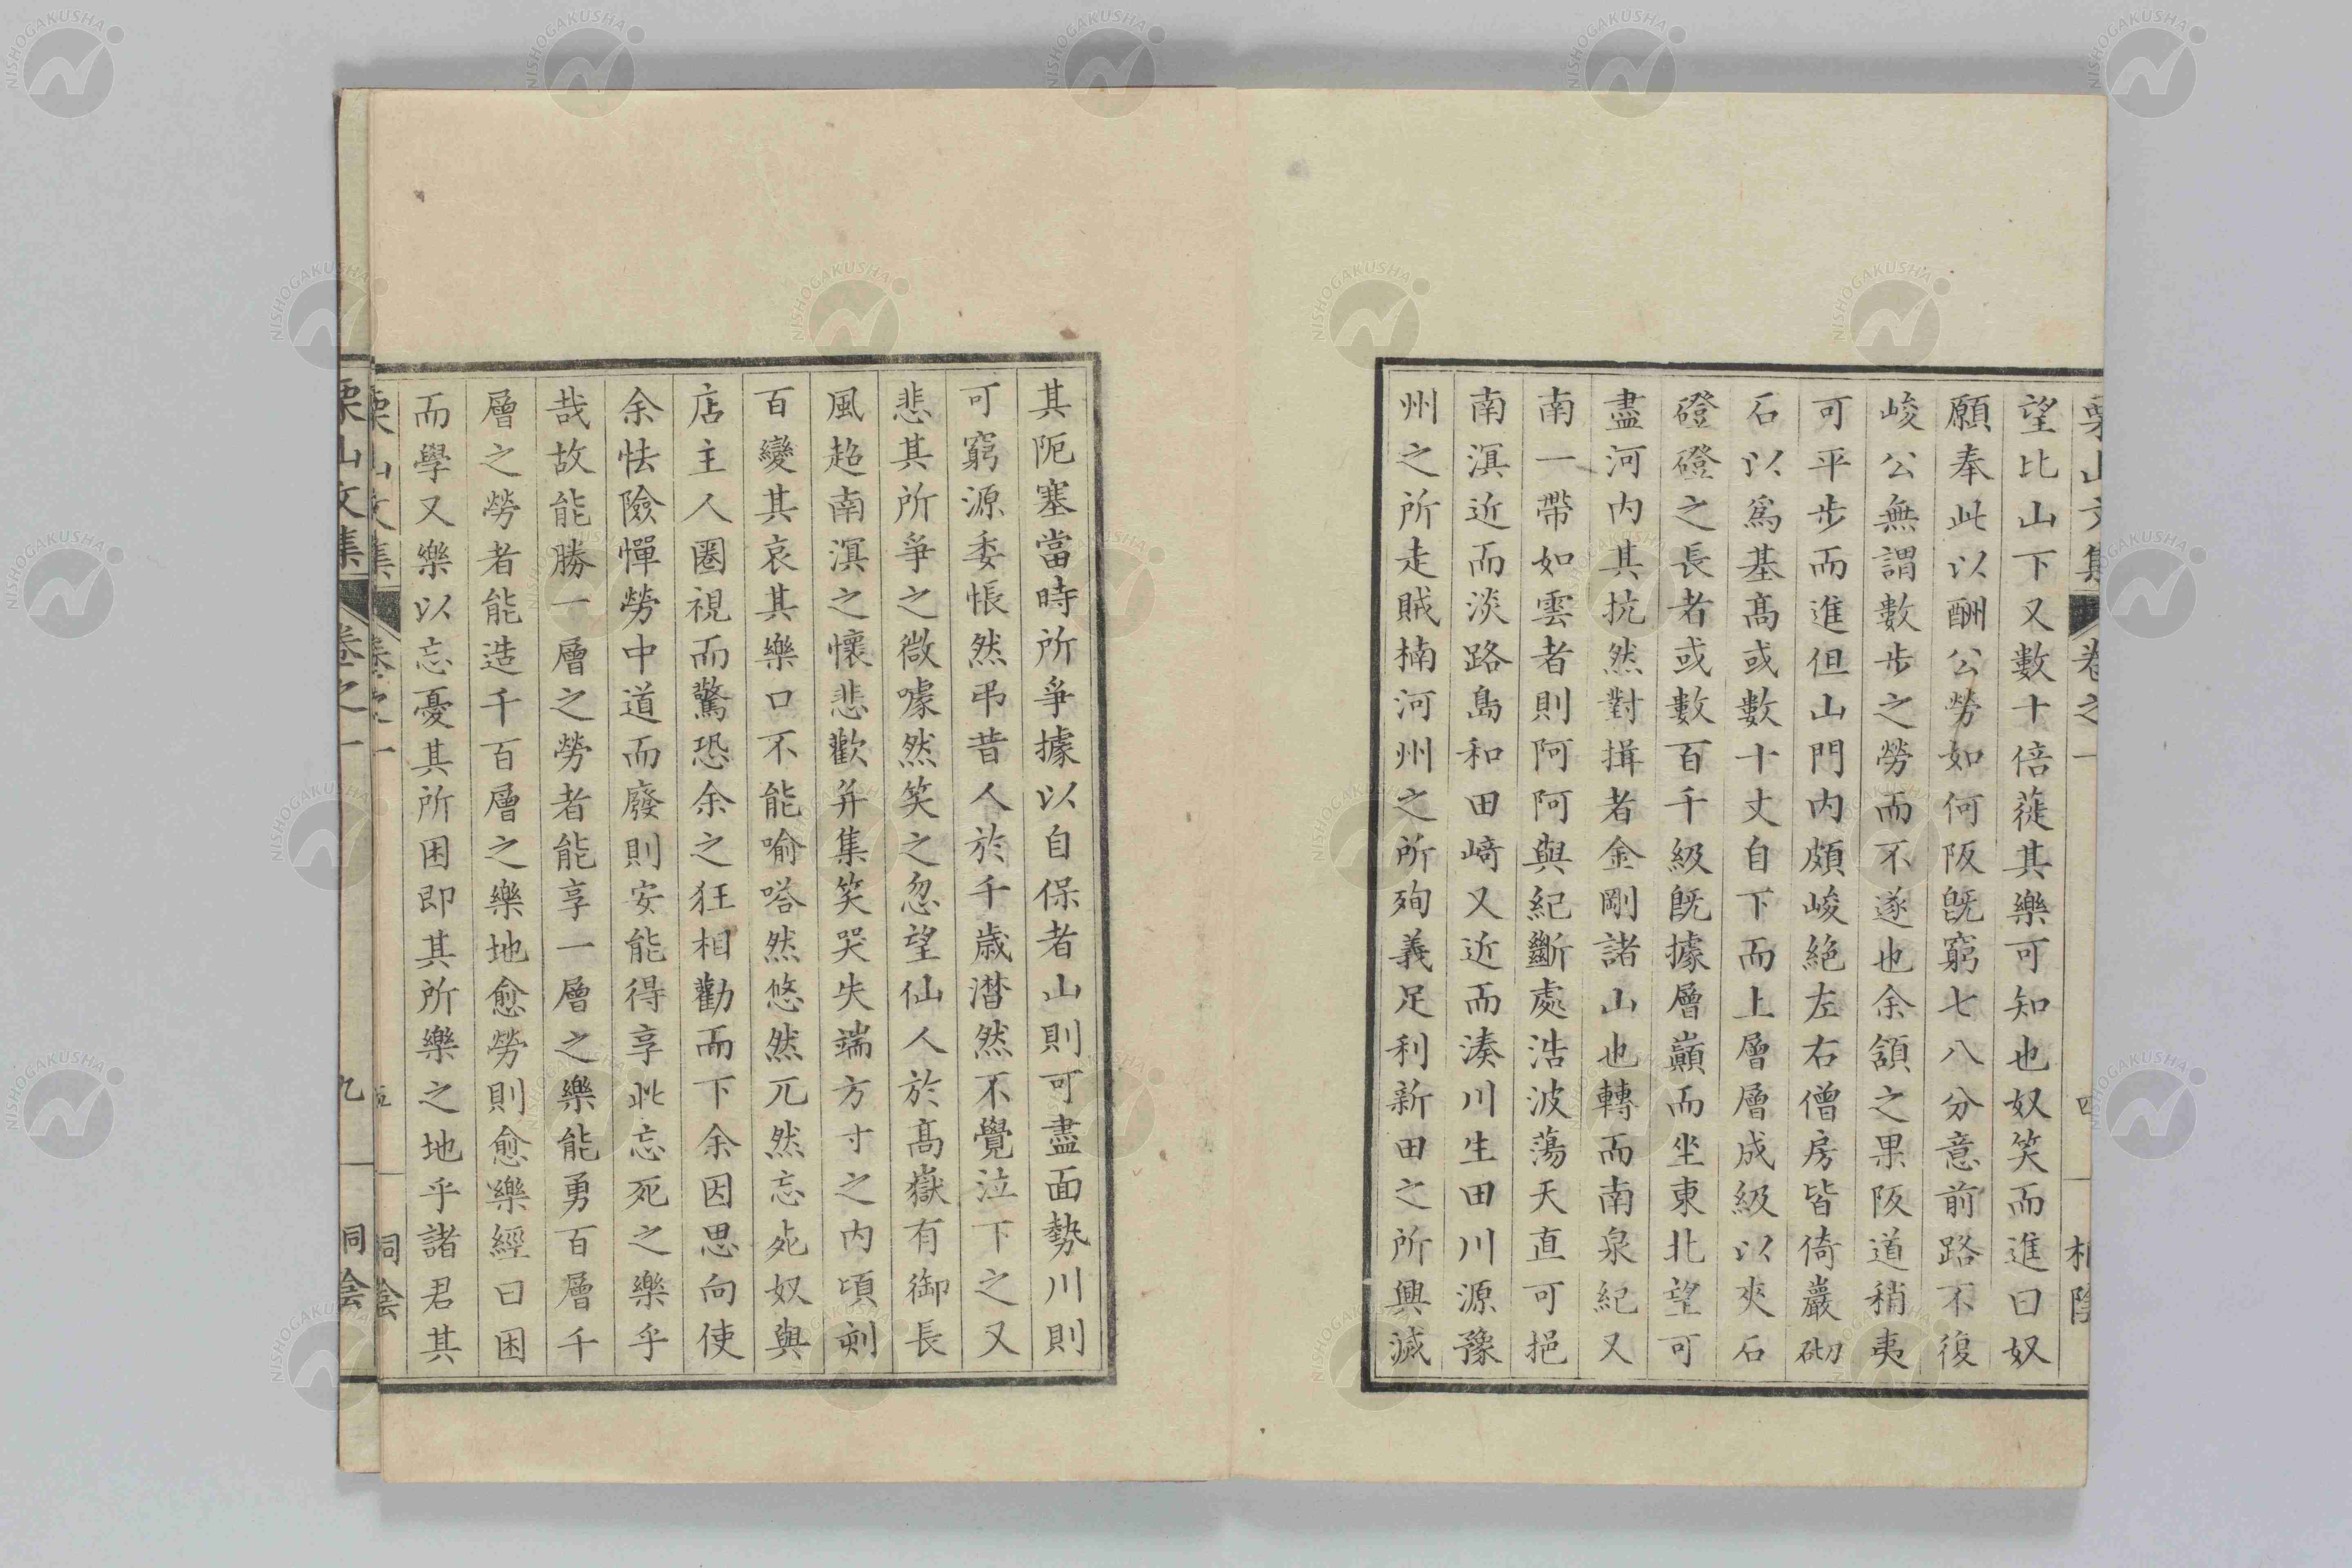 栗山文集 卷之一 四
望比山下又數十倍蓰其樂可知也奴笑而進曰奴
願奉此以酬公勞如何阪旣窮七八分意前路不復
峻公無謂數步之勞而不遂也余頷之果阪道稍夷
可平步而進但山門內頗峻絕左右僧房皆倚巖砌
石以爲基高或數十丈自下而上層層成級以夾石
磴磴之長者或數百千級旣據層巔而坐東北望可
盡河內其抗然對揖者金剛諸山也轉而南泉紀又
南一帶如雲者則阿阿與紀斷處浩波蕩天直可挹
南溟近而淡路島和田崎又近而湊川生田川源豫
州之所走賊楠河州之所殉義足利新田之所興滅
其阨塞當時所爭據以自保者山則可盡面勢川則
可窮源委悵然弔昔人於千歲潸然不覺泣下之又
悲其所爭之微噱然笑之忽望仙人於高嶽有御長
風超南溟之懷悲歡并集笑哭失端方寸之內頃刻
百變其哀其樂口不能喻嗒然悠然兀然忘死奴與
店主人圈視而驚恐余之狂相勸而下余因思向使
余怯險憚勞中道而廢則安能得享此忘死之樂乎
哉故能勝一層之勞者能享一層之樂能勇百層千
層之勞者能造千百層之樂地愈勞則愈樂經曰困
而學又樂以忘憂其所困即其所樂之地乎諸君其
栗山文集 卷之一 五
栗山文集 卷之一 九